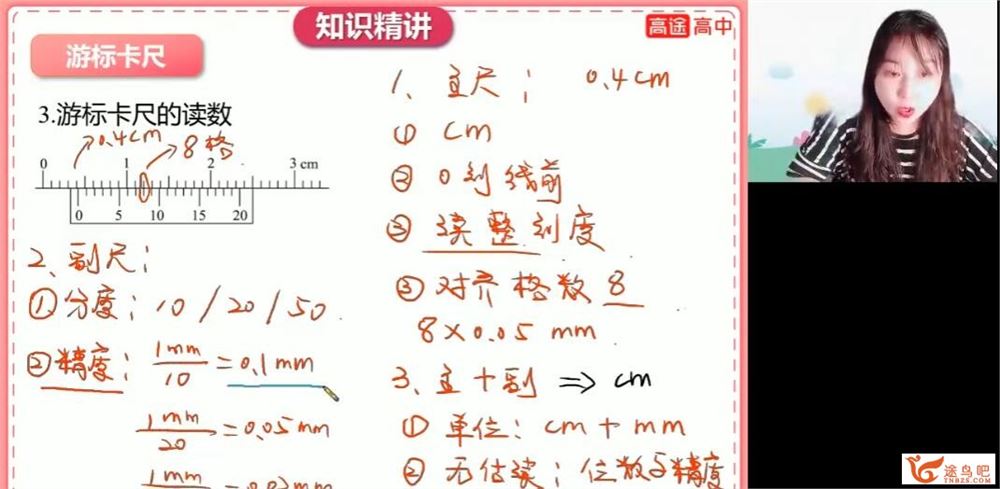 知识精讲
高途高中
游标卡尺
3.游标卡尺的读数
0.4cm
8格
0 1 2 3 cm
0 5 10 15 20
2、副尺：
①分度：10/20/50
②精度：1mm/10=0.1mm
1mm/20=0.05mm
1mm
=0.02mm
1、主尺；0.4cm
① cm
② 0刻线前
③ 读整刻度
③ 对齐格数 8
8×0.05 mm
3、主+副 ⇒ cm
① 单位：cm+mm
② 无估读；位数与精度
途鸟吧
TNBZS.COM